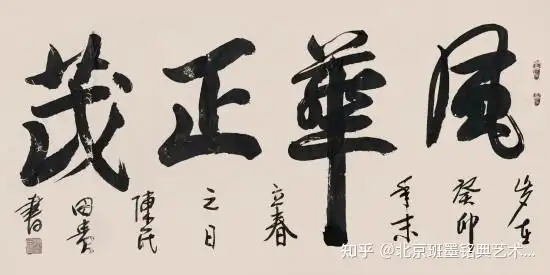 風華正茂
岁在
癸卯
年末
立春
之日
陳氏
田贵
書
知乎 @北京班墨铭典艺术...